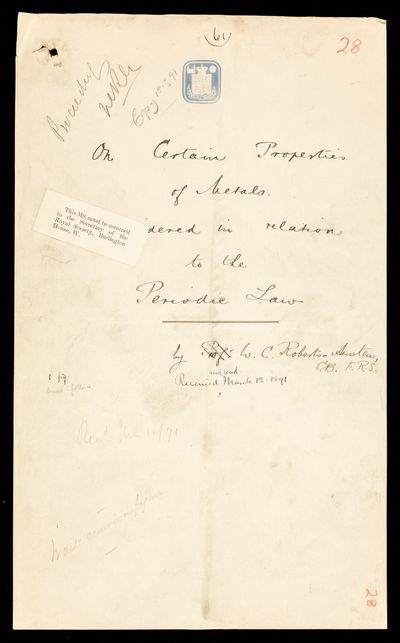 (61)
28
On Certain Properties
of Metals.
This MS. must be returned
to the Secretary of the
Royal Society, Burlington
House, W.
idered in relation
to the
Periodic Law
by Prof. W. C. Roberts-Austen,
CB. F.R.S.
Received March 12 - 1891
1 fig.
28